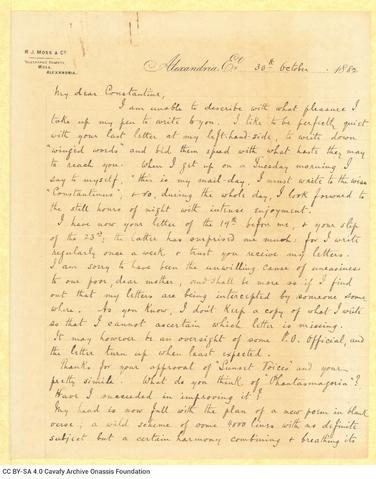 R. J. MOSS & Co.
TELEGRAPHIC ADDRESS,
MOSS,
ALEXANDRIA.
Alexandria, Et. 30th October 1882
My dear Constantine,
I am unable to describe with what pleasure I
take up my pen to write to you. I like to be perfectly quiet
with your last letter at my left-hand-side, to write down
"winged words" and bid them speed with what haste they may
to reach you. When I get up on a Tuesday morning I
say to myself, "this is my mail-day, I must write to the wise
"Constantinus"; & so, during the whole day, I look forward to
the still hours of night with intense enjoyment.
I have now your letter of the 19th before me, & your slip
of the 23rd; the latter has surprised me much: for I write
regularly once a week & trust you receive my letters.
I am sorry to have been the unwilling cause of uneasiness
to our poor, dear mother, and shall be more so if I find
out that my letters are being intercepted by someone some
where. As you know, I don't keep a copy of what I write
so that I cannot ascertain which letter is missing.
It may however be an oversight of some P.O. official, and
the letter turn up when least expected.
Thanks for your approval of "Sunset Voices" and your
pretty simile. What do you think of "Phantasmagoria"?
Have I succeeded in improving it?
My head is now full with the plan of a new poem in blank
verse; a wild scheme of some 4000 lines with no definite
subject but a certain harmony combining & breathing its
CC BY-SA 4.0 Cavafy Archive Onassis Foundation